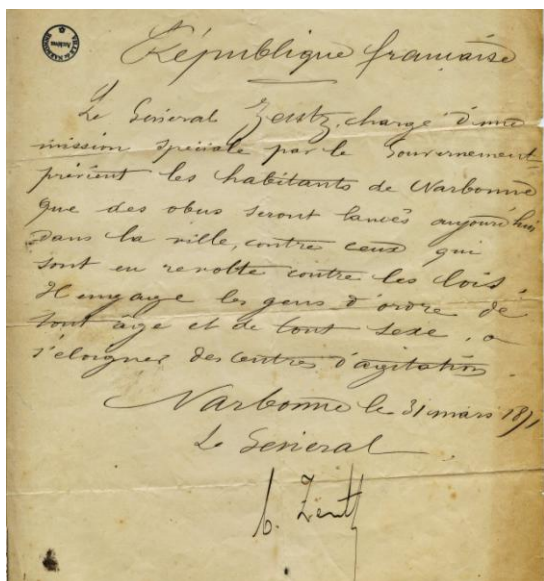 République française
Le Général Zentz, chargé d'une
mission spéciale par le Gouvernement
prévient les habitants de Narbonne
que des obus seront lancés aujourd'hui
dans la ville, contre ceux qui
sont en revolte contre les lois,
Il engage les gens d'ordre de
tout âge et de tout sexe, a
s'éloigner des centres d'agitation.
Narbonne le 31 mars 1871
Le Général